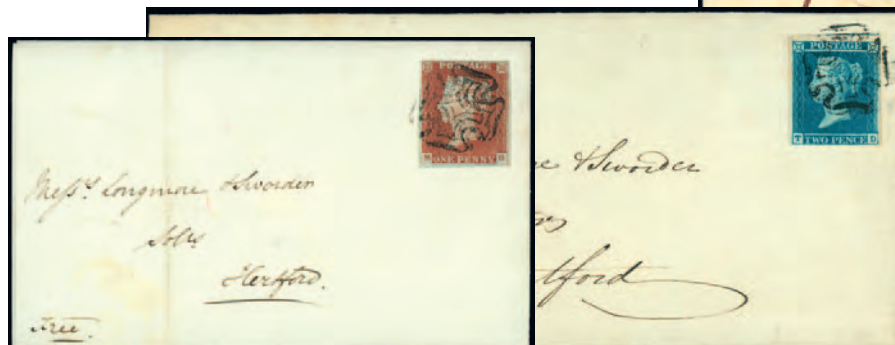 POSTAGE
ONE PENNY
Mess.rs Longmore & Sworder
Solrs
Hertford.
Free.
POSTAGE
TWO PENCE
re & Sworder
tford